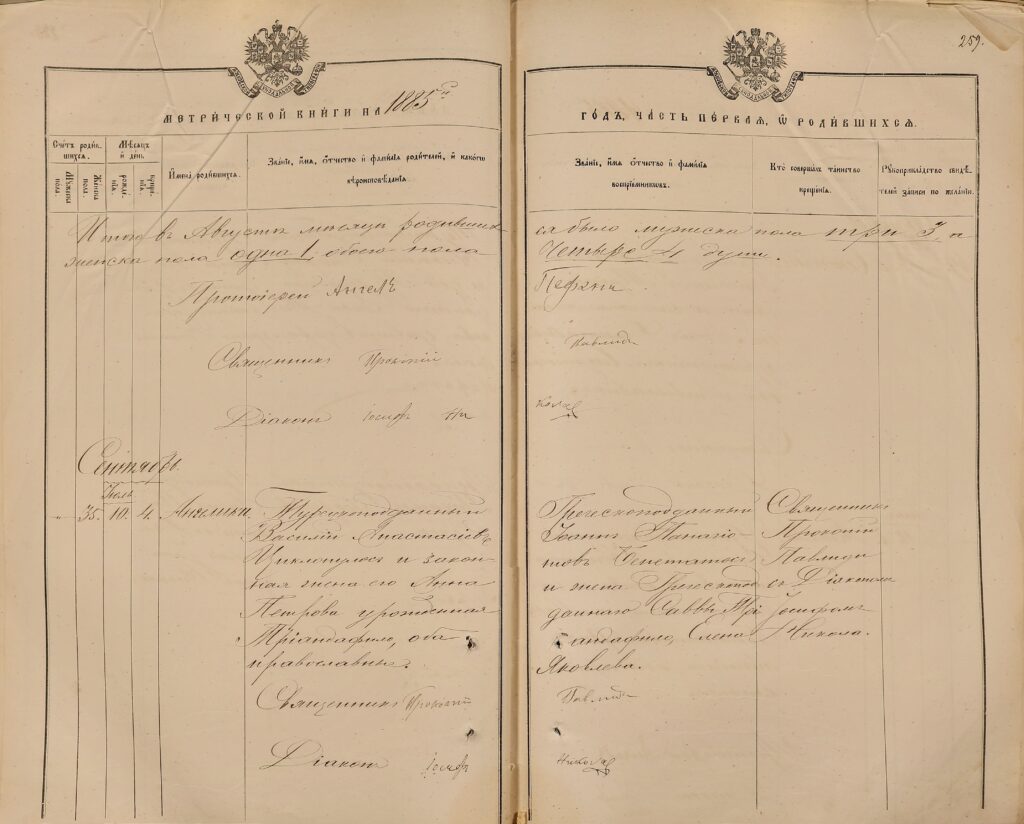 259.
МЕТРИЧЕСКОЙ КНИГИ НА 1885й
ГОДЪ, ЧАСТЬ ПЕРВАЯ, Ѿ РОДИВШИХСЯ.
Счетъ родившихся.
Мужеска пола.
Женска пола.
Мѣсяцъ и день.
рожденія.
крещенія.
Имена родившихся.
Званіе, имя, отчество и фамилія родителей, и какого
вѣроисповѣданія.
Званіе, имя отчество и фамилія
воспріемниковъ.
Кто совершалъ таинство
крещенія.
Рукоприкладство свидѣ-
телей записи по желанію.
Итого въ Августѣ мѣсяцѣ родивших
ся было мужеска пола три 3, а
женска пола одна 1 обоего пола
Четыре 4 души.
Протоіерей Ангелъ
Пефани
Священникъ Прокопій
Павлиди
Діаконъ Іосифъ Ни
колае
Сентябрь
Іюль
" 35. 10. 4. Ангелики
Турецкоподданный
Василій Анастасіевъ
и закон-
ная жена его Анна
Петрова урожденная
Тріандафило, оба
православны.
Греческоподданный
Іоаннъ Панагіо-
товъ
и жена Грекопод
даннаго Саввы Трі
андафило, Елена
Яковлева.
Священникъ
Прокопій
Павлиди
съ Діакономъ
Іосифомъ
Никола.
Священникъ Прокопій
Павлиди
Діаконъ Іосифъ
Николае